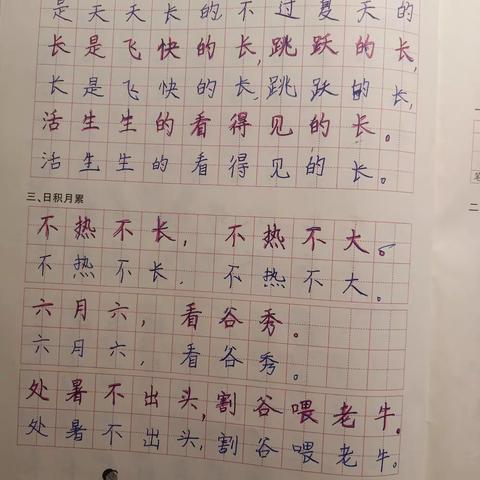 是天天长的不过夏天的
长是飞快的长,跳跃的长,
长是飞快的长,跳跃的长,
活生生的看得见的长。
活生生的看得见的长。
三、日积月累
不热不长,不热不大。
不热不长,不热不大。
六月六,看谷秀。
六月六,看谷秀。
处暑不出头,割谷喂老牛。
处暑不出头,割谷喂老牛。
笔
二